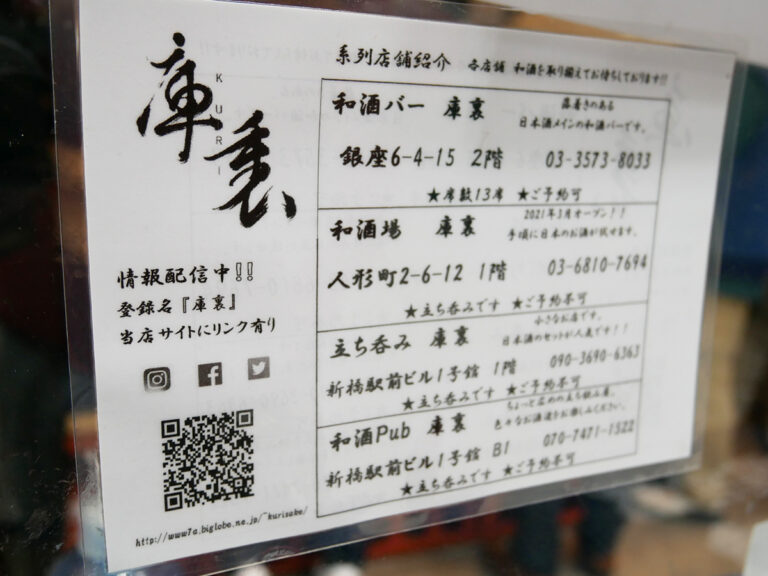 庫裏
KURI
情報配信中!!
登録名『庫裏』
当店サイトにリンク有り
http://www7a.biglobe.ne.jp/~kurisake/
系列店舗紹介 各店舗 和酒を取り揃えてお待ちしております!!
和酒バー 庫裏
落着きのある
日本酒メインの和酒バーです。
銀座6-4-15 2階 03-3573-8033
★席数13席 ★ご予約可
和酒場 庫裏
2021年3月オープン!!
手頃に日本のお酒が試せます。
人形町2-6-12 1階 03-6810-7694
★立ち呑みです ★ご予約不可
立ち呑み 庫裏
小さなお店です。
日本酒のセットが人気です!!
新橋駅前ビル1号館 1階 090-3690-6363
★立ち呑みです ★ご予約不可
和酒Pub 庫裏
ちょっと広めの立ち飲み屋。
色々なお酒達をお楽しみください。
新橋駅前ビル1号館 B1 070-7471-1522
★立ち呑みです ★ご予約不可